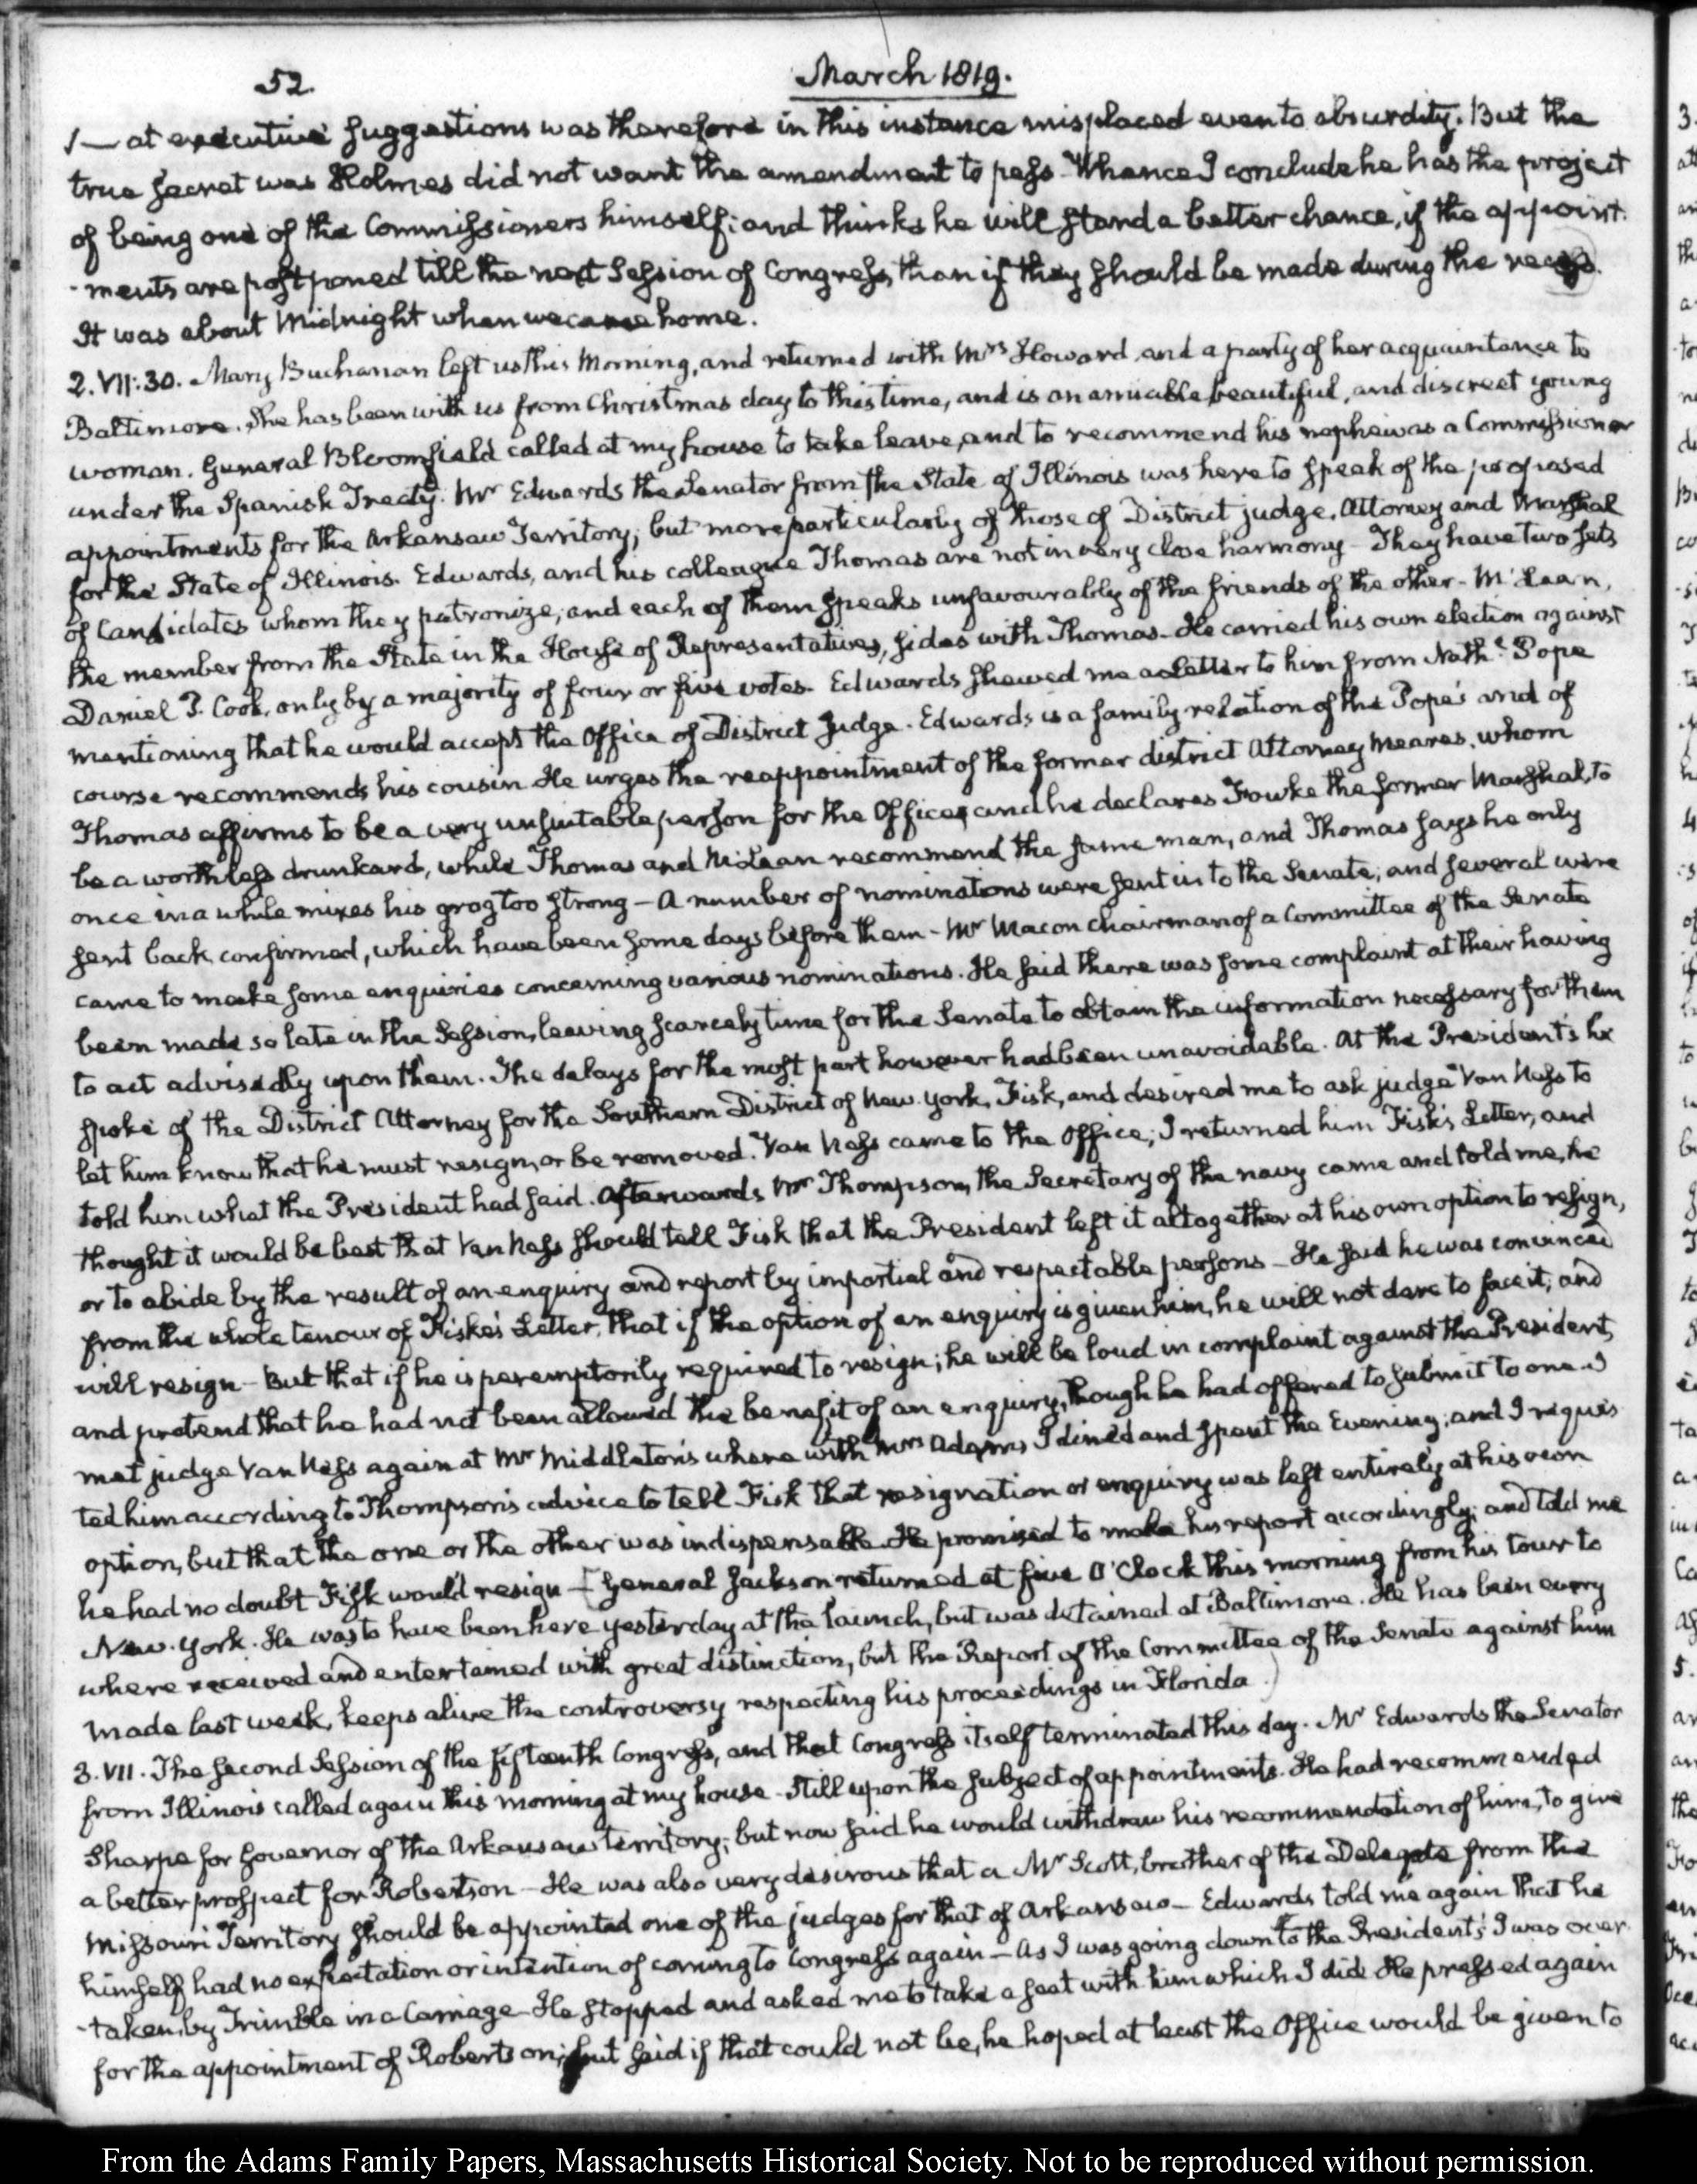 52.
March 1819.
1 — at executive suggestions was therefore in this instance misplaced even to absurdity. But the
true secret was Holmes did not want the amendment to pass — Whence I conclude he has the project
of being one of the Commissioners himself; and thinks he will stand a better chance, if the appoint-
-ments are postponed till the next Session of Congress, than if they should be made during the recess.
It was about Midnight when we came home.
2. VII:30. Mary Buchanan left us this Morning, and returned with Mrs Howard and a party of her acquaintance to
Baltimore. She has been with us from Christmas day to this time, and is an amiable, beautiful, and discreet young
woman. General Bloomfield called at my house to take leave, and to recommend his nephew as a Commissioner
under the Spanish Treaty. Mr Edwards the Senator from the State of Illinois was here to speak of the proposed
appointments for the Arkansaw Territory; but more particularly of those of District judge, Attorney and Marshal
for the State of Illinois. Edwards, and his colleague Thomas are not in very close harmony — They have two sets
of Candidates whom they patronize, and each of them speaks unfavourably of the friends of the other — McLean,
the member from the State in the House of Representatives, sides with Thomas — He carried his own election against
Daniel P. Cook, only by a majority of four or five votes. Edwards shewed me a Letter to him from Nathl Pope
mentioning that he would accept the Office of District Judge. Edwards is a family relation of the Pope's and of
course recommends his cousin. He urges the reappointment of the former district Attorney Meares, whom
Thomas affirms to be a very unsuitable person for the Office; and he declares Fowke the former Marshal, to
be a worthless drunkard, while Thomas and McLean recommend the same man, and Thomas says he only
once in a while mixes his grog too strong — A number of nominations were sent in to the Senate; and several were
sent back confirmed, which have been some days before them — Mr Macon Chairman of a Committee of the Senate
came to make some enquiries concerning various nominations. He said there was some complaint at their having
been made so late in the Session, leaving scarcely time for the Senate to obtain the information necessary for them
to act advisedly upon them. The delays for the most part however had been unavoidable. At the President's he
spoke of the District Attorney for the Southern District of New-York, Fisk, and desired me to ask judge Van Ness to
let him know that he must resign, or be removed. Van Ness came to the Office; I returned him Fisk's Letter, and
told him what the President had said. Afterwards Mr Thompson, the Secretary of the navy came and told me, he
thought it would be best that Van Ness should tell Fisk that the President left it altogether at his own option to resign,
or to abide by the result of an enquiry and report by impartial and respectable persons — He said he was convinced
from the whole tenour of Fiske's Letter, that if the option of an enquiry is given him, he will not dare to face it, and
will resign — But that if he is peremptorily required to resign; he will be loud in complaint against the President,
and pretend that he had not been allowed the benefit of an enquiry, though he had offered to submit to one. I
met judge Van Ness again at Mr Middleton's where with Mrs Adams I dined and spent the Evening; and I reques-
ted him according to Thompson's advice to tell Fisk that resignation or enquiry was left entirely at his own
option, but that the one or the other was indispensable. He promised to make his report accordingly; and told me
he had no doubt Fisk would resign — [General Jackson returned at five O'Clock this morning from his tour to
New-York. He was to have been here yesterday at the launch, but was detained at Baltimore. He has been every
where received and entertained with great distinction, but the Report of the Committee of the Senate against him
made last week, keeps alive the controversy respecting his proceedings in Florida.)
3. VII. The second Session of the fifteenth Congress, and that Congress itself terminated this day. Mr Edwards the Senator
from Illinois called again this morning at my house — Still upon the subject of appointments. He had recommended
Sharpe for Governor of the Arkansaw territory; but now said he would withdraw his recommendation of him, to give
a better prospect for Robertson — He was also very desirous that a Mr Scott, brother of the Delegate from the
Missouri Territory should be appointed one of the judges for that of Arkansaw — Edwards told me again that he
himself had no expectation or intention of coming to Congress again — As I was going down to the President's I was over-
-taken, by Trimble in a Carriage — He stopped and asked me to take a seat with him which I did. He pressed again
for the appointment of Robertson; but said if that could not be, he hoped at least the Office would be given to
From the Adams Family Papers, Massachusetts Historical Society. Not to be reproduced without permission.